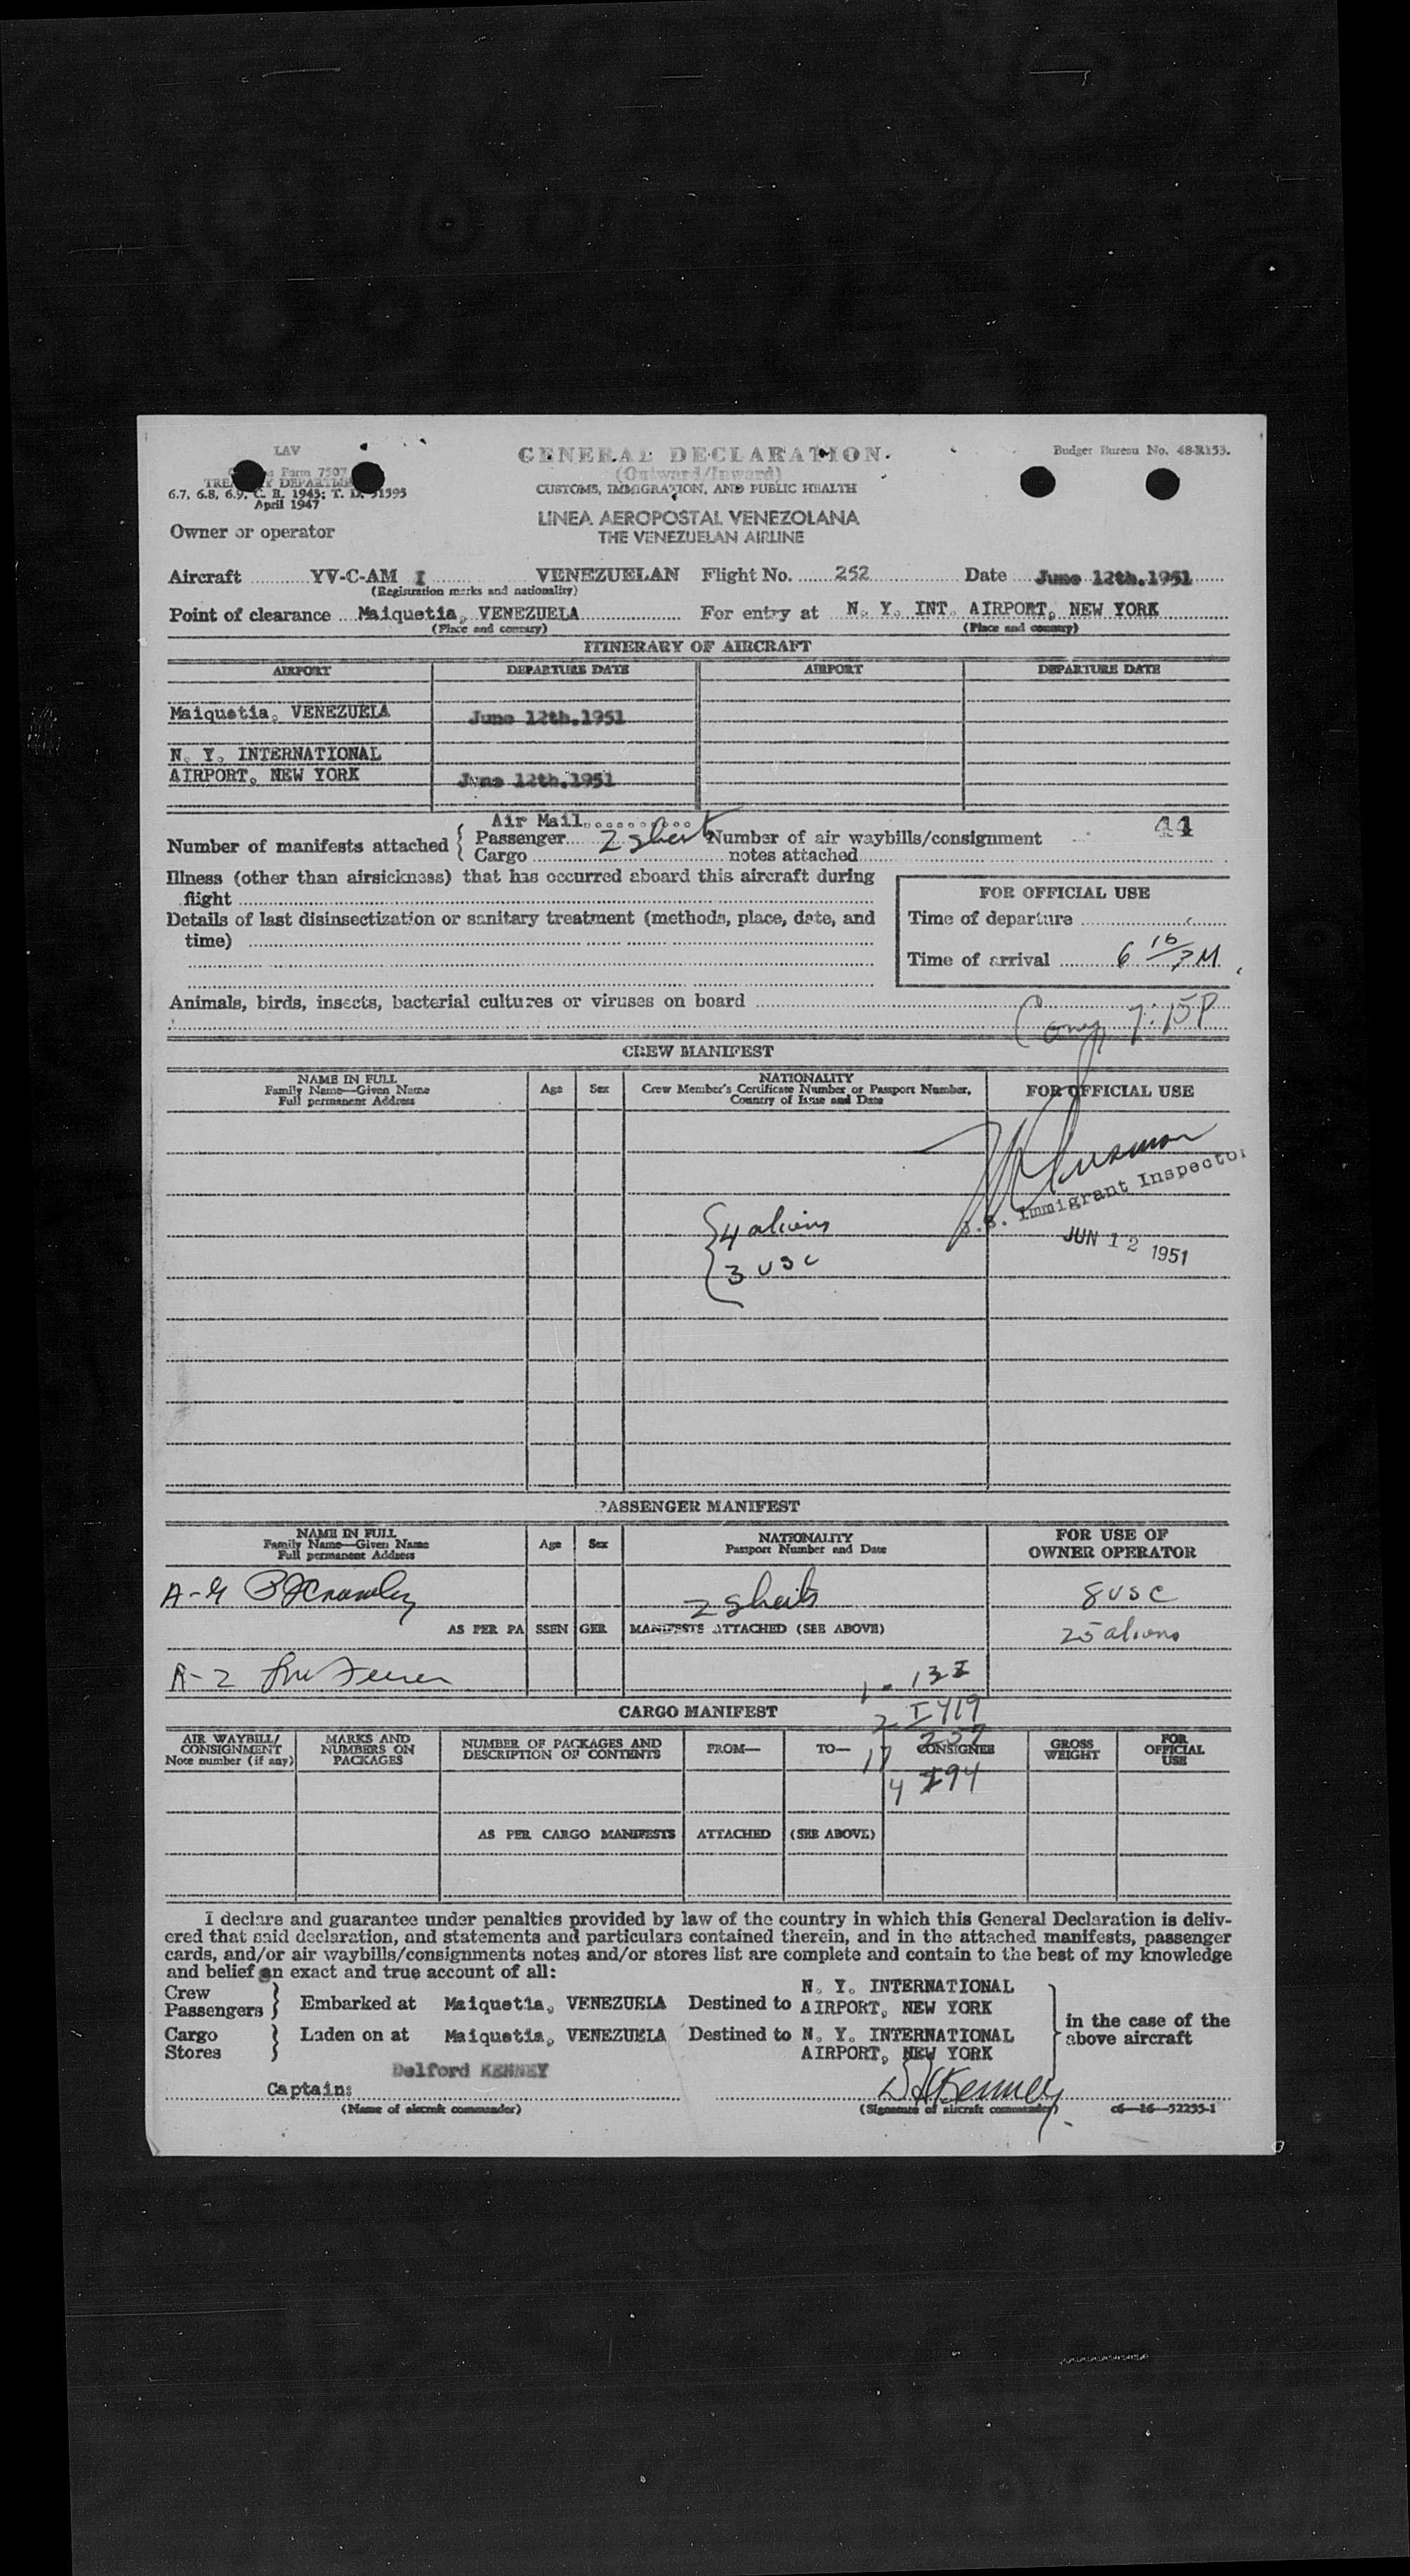 LAV
GENERAL DECLARATION
Budget Bureau No. 48-R153.
Form 7507
(Outward/Inward)
TREASURY DEPARTMENT
CUSTOMS, IMMIGRATION, AND PUBLIC HEALTH
6.7, 6.8, 6.9, C. R. 1943; T. D. 51595
April 1947
LINEA AEROPOSTAL VENEZOLANA
THE VENEZUELAN AIRLINE
Owner or operator
Aircraft YV-C-AM I VENEZUELAN Flight No. 252 Date June 12th.1951
(Registration marks and nationality)
Point of clearance Maiquetia, VENEZUELA For entry at N. Y. INT. AIRPORT, NEW YORK
(Place and country) (Place and country)
ITINERARY OF AIRCRAFT
AIRPORT DEPARTURE DATE AIRPORT DEPARTURE DATE
Maiquetia, VENEZUELA June 12th.1951
N. Y. INTERNATIONAL
AIRPORT, NEW YORK June 12th.1951
Air Mail
44
Number of manifests attached { Passenger 2 sheets Number of air waybills/consignment
Cargo notes attached
Illness (other than airsickness) that has occurred aboard this aircraft during
flight
FOR OFFICIAL USE
Details of last disinsectization or sanitary treatment (methods, place, date, and
time)
Time of departure
Time of arrival 6 16 PM
Animals, birds, insects, bacterial cultures or viruses on board
7:15P
CREW MANIFEST
NAME IN FULL
Family Name—Given Name
Full permanent Address
Age Sex
NATIONALITY
Crew Member's Certificate Number or Passport Number,
Country of Issue and Date
FOR OFFICIAL USE
U.S. Immigrant Inspector
JUN 12 1951
4 aliens
3 USC
PASSENGER MANIFEST
NAME IN FULL
Family Name—Given Name
Full permanent Address
Age Sex
NATIONALITY
Passport Number and Date
FOR USE OF
OWNER OPERATOR
A-4 2 sheets 8 USC
AS PER PASSENGER MANIFESTS ATTACHED (SEE ABOVE) 25 aliens
A-2
1. 13 I
CARGO MANIFEST
2 I 419
17 257
4 I 94
AIR WAYBILL/
CONSIGNMENT
Note number (if any)
MARKS AND
NUMBERS ON
PACKAGES
NUMBER OF PACKAGES AND
DESCRIPTION OF CONTENTS
FROM— TO— CONSIGNEE
GROSS
WEIGHT
FOR
OFFICIAL
USE
AS PER CARGO MANIFESTS ATTACHED (SEE ABOVE)
I declare and guarantee under penalties provided by law of the country in which this General Declaration is deliv-
ered that said declaration, and statements and particulars contained therein, and in the attached manifests, passenger
cards, and/or air waybills/consignments notes and/or stores list are complete and contain to the best of my knowledge
and belief an exact and true account of all:
Crew
Passengers } Embarked at Maiquetia, VENEZUELA Destined to N. Y. INTERNATIONAL
AIRPORT, NEW YORK
Cargo
Stores } Laden on at Maiquetia, VENEZUELA Destined to N. Y. INTERNATIONAL
AIRPORT, NEW YORK
in the case of the
above aircraft
Delford KENNEY
Captain:
(Name of aircraft commander)
D Kenney
(Signature of aircraft commander)
c6—16—52255-1